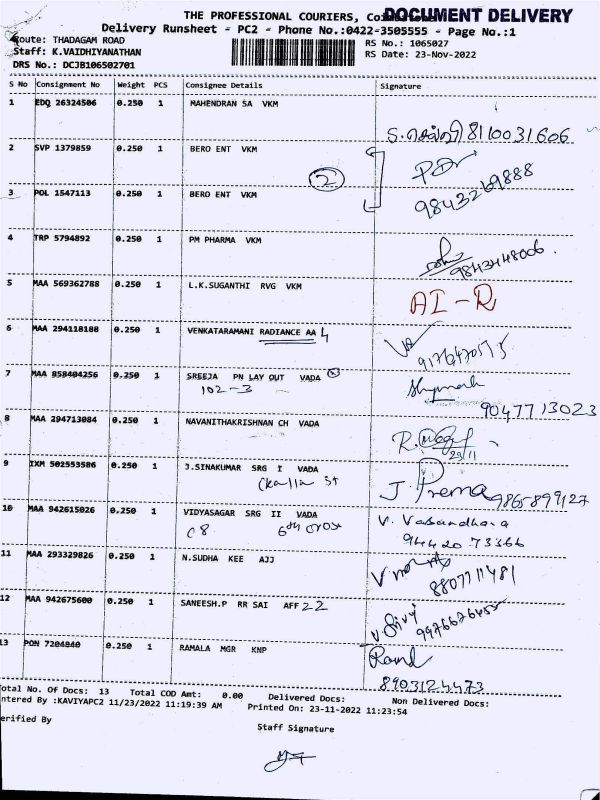 THE PROFESSIONAL COURIERS,
DOCUMENT DELIVERY
Delivery Runsheet - PC2 - Phone No.:0422-3505555 - Page No.:1
Route: THADAGAM ROAD
RS No.: 1065027
Staff: K.VAIDHIYANATHAN
RS Date: 23-Nov-2022
DRS No.: DCJB106502701
S No Consignment No Weight PCS Consignee Details Signature
1 EDQ 26324506 0.250 1 MAHENDRAN SA VKM
8110031606
2 SVP 1379859 0.250 1 BERO ENT VKM
2
3 POL 1547113 0.250 1 BERO ENT VKM
9843269888
4 TRP 5794892 0.250 1 PM PHARMA VKM
9843448006.
5 MAA 569362788 0.250 1 L.K.SUGANTHI RVG VKM
AI-R
6 MAA 294118188 0.250 1 VENKATARAMANI RADIANCE AA 4
7 MAA 858404256 0.250 1 SREEJA PN LAY OUT VADA
102-3
9047713023
8 MAA 294713084 0.250 1 NAVANITHAKRISHNAN CH VADA
23/11
9 IXM 502553586 0.250 1 J.SINAKUMAR SRG I VADA
J. Prema 9865899127
10 MAA 942615026 0.250 1 VIDYASAGAR SRG II VADA V. Vasandhara
C8 6th cross 94420 73366
11 MAA 293329826 0.250 1 N.SUDHA KEE AJJ
8807711481
12 MAA 942675600 0.250 1 SANEESH.P RR SAI AFF 22
9976676455
13 PON 7204840 0.250 1 RAMALA MGR KNP
8903124473
Total No. Of Docs: 13 Total COD Amt: 0.00 Delivered Docs: Non Delivered Docs:
Entered By :KAVIYAPC2 11/23/2022 11:19:39 AM Printed On: 23-11-2022 11:23:54
Verified By
Staff Signature